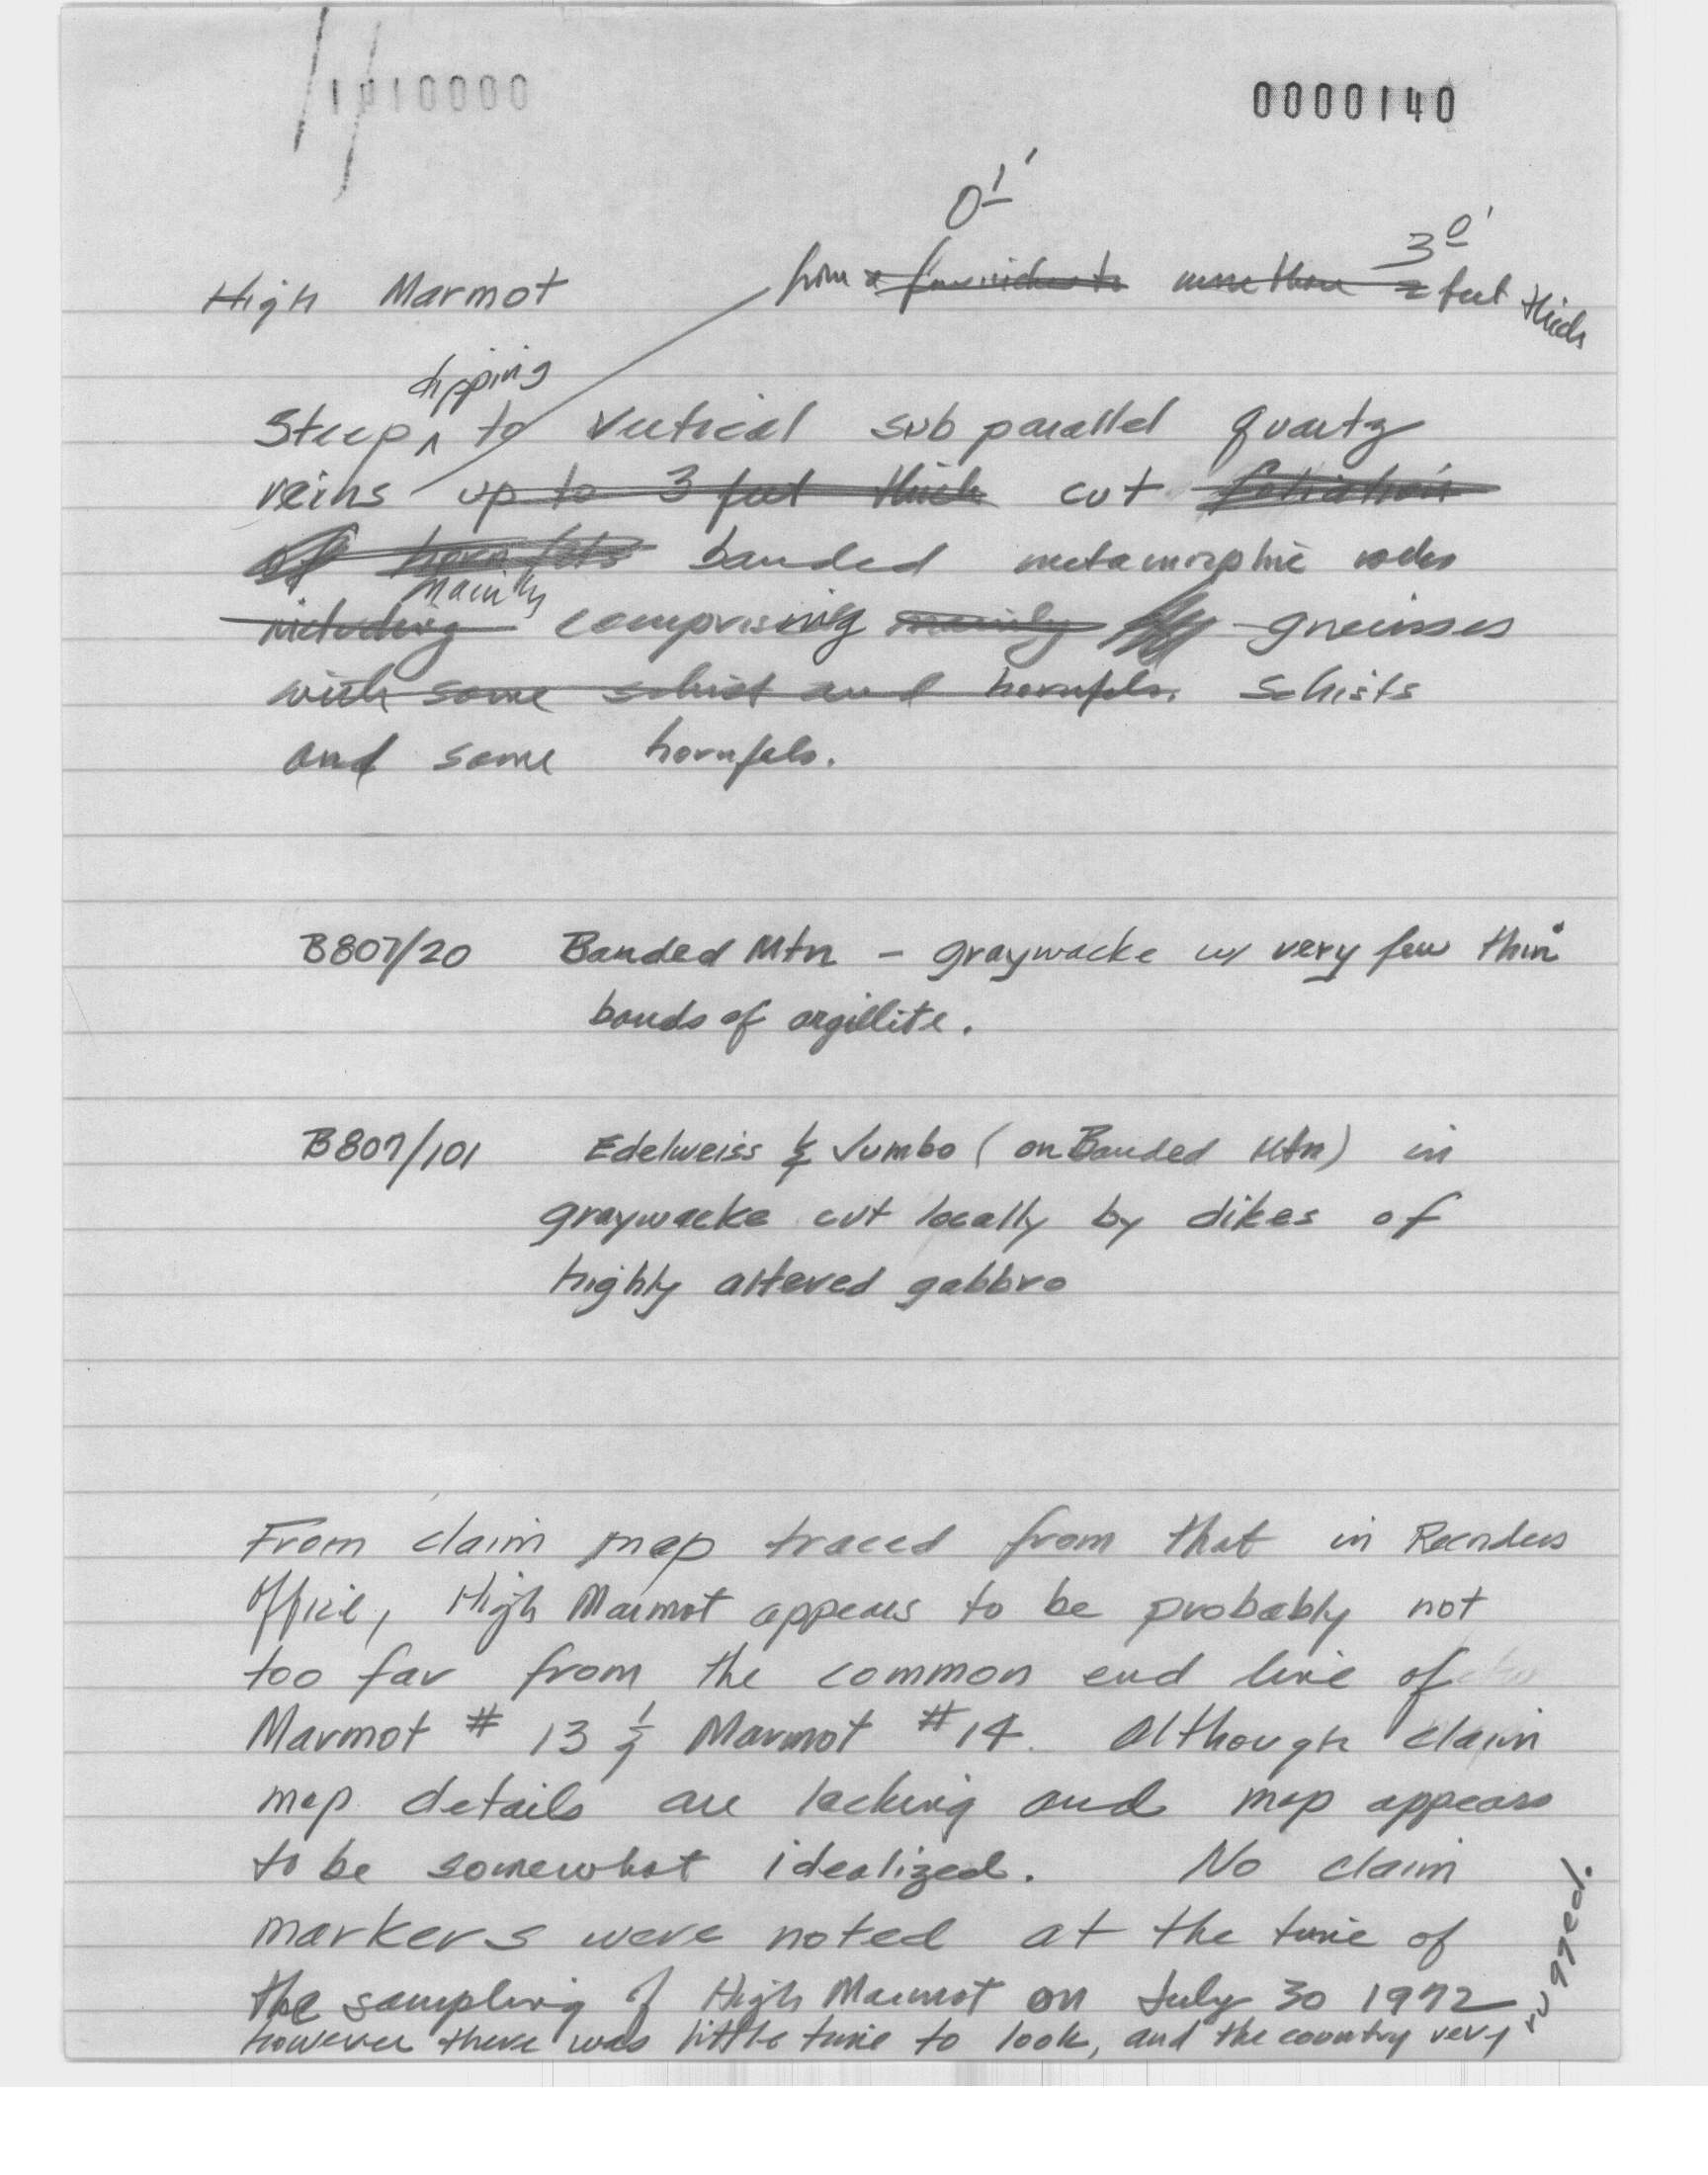 1010000
0000140
0 1'
3 0'
High Marmot
from a few inches to more than 2 feet thick
dipping
Steep ^ to vertical sub parallel quartz
veins up to 3 feet thick cut foliation
of hornfels banded metamorphic rocks
mainly
including comprising mainly gneisses
with some schist and hornfels. Schists
and some hornfels.
B807/20 Banded Mtn - graywacke w/ very few thin
bands of argillite.
B807/101 Edelweiss & Jumbo (on Banded Mtn) in
graywacke cut locally by dikes of
highly altered gabbro
From claim map traced from that in Recorders
Office, High Marmot appears to be probably not
too far from the common end line of
Marmot # 13 & Marmot # 14. Although claim
map details are lacking and map appears
to be somewhat idealized. No claim
markers were noted at the time of
the sampling of High Marmot on July 30 1972
however there was little time to look, and the country very
rugged.